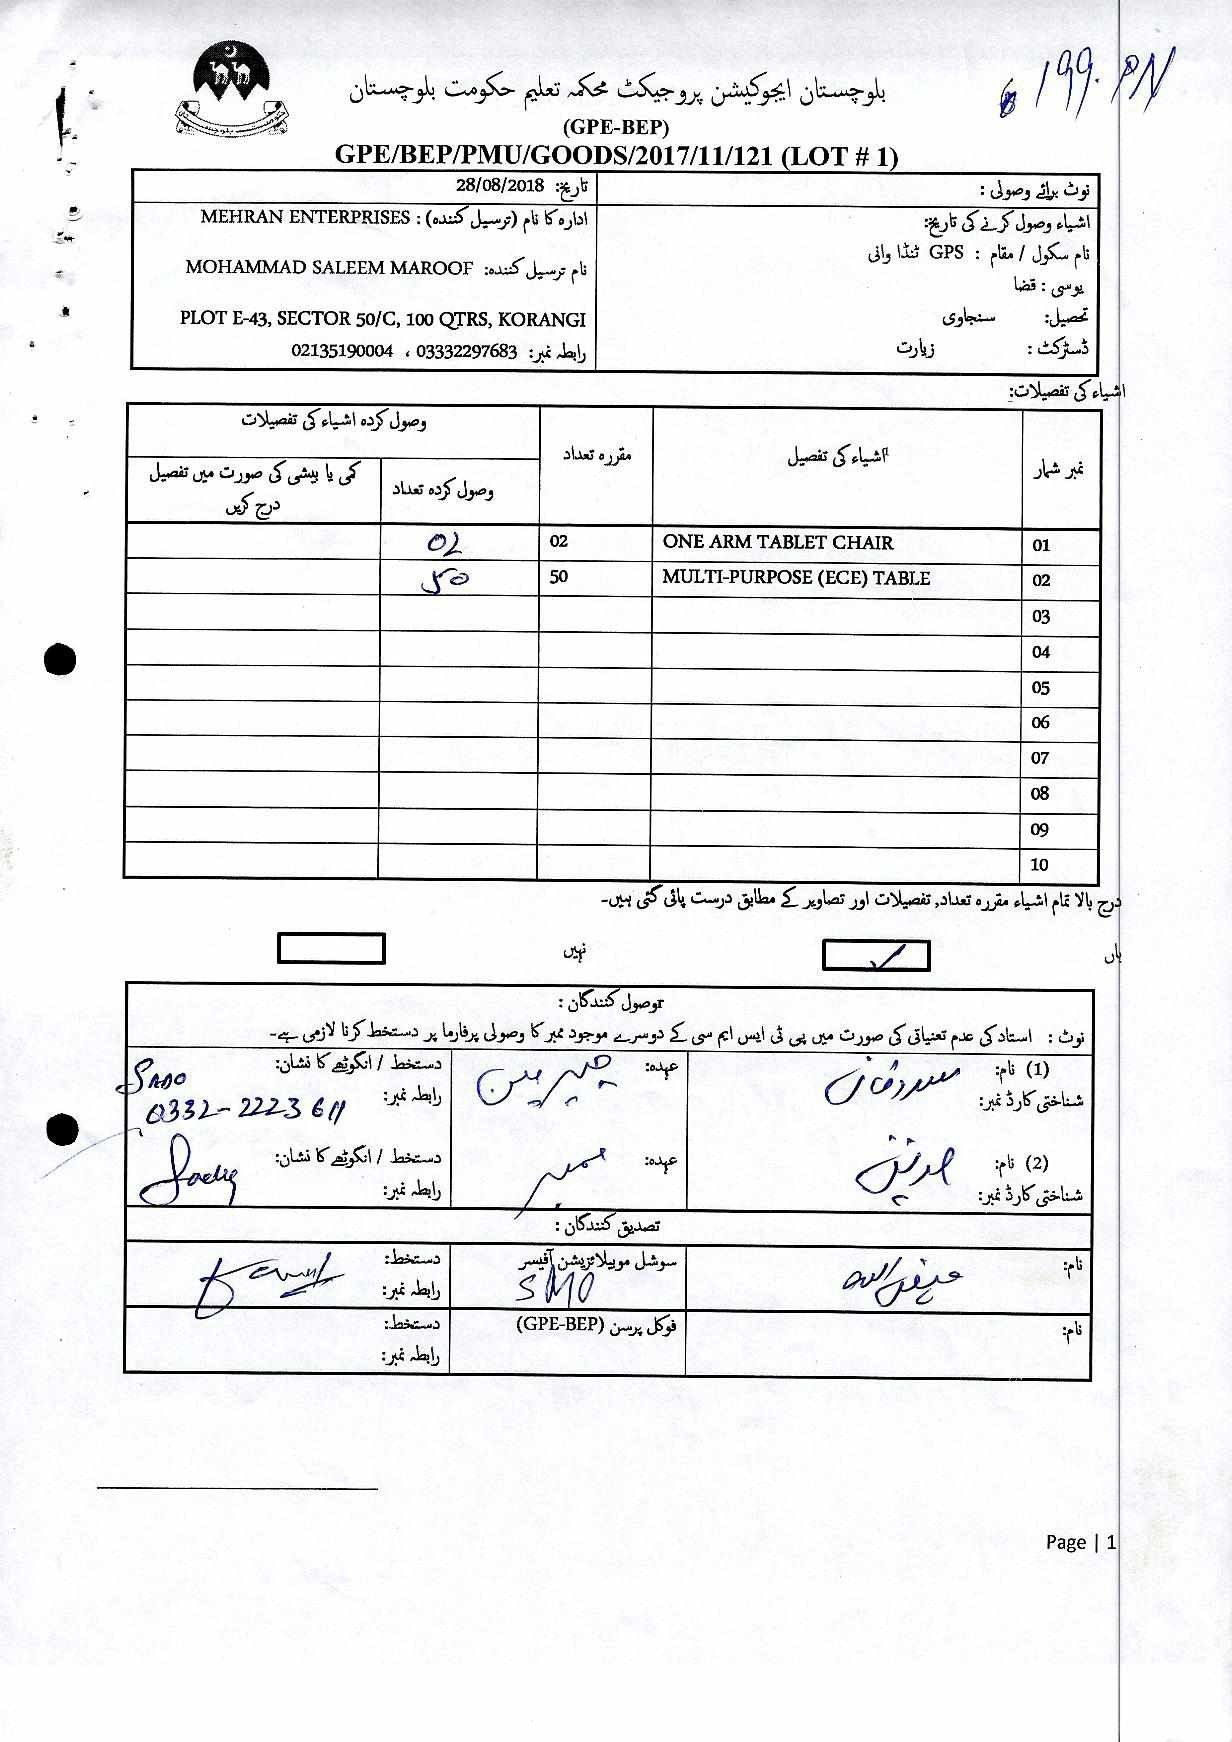 199. PN
بلوچستان ایجوکیشن پروجیکٹ محکمہ تعلیم حکومت بلوچستان
(GPE-BEP)
GPE/BEP/PMU/GOODS/2017/11/121 (LOT # 1)
نوٹ برائے وصولی :
تاریخ: 28/08/2018
اشیاء وصول کرنے کی تاریخ:
نام سکول / مقام : GPS ٹنڈا وانی
یوسی : قضا
تحصیل: سنجاوی
ڈسٹرکٹ : زیارت
ادارہ کا نام (ترسیل کنندہ) : MEHRAN ENTERPRISES
نام ترسیل کنندہ: MOHAMMAD SALEEM MAROOF
PLOT E-43, SECTOR 50/C, 100 QTRS, KORANGI
رابطہ نمبر: 03332297683 ، 02135190004
اشیاء کی تفصیلات:
نمبر شمار اشیاء کی تفصیل مقررہ تعداد وصول کردہ اشیاء کی تفصیلات
وصول کردہ تعداد کمی یا بیشی کی صورت میں تفصیل درج کریں
01 ONE ARM TABLET CHAIR 02 02
02 MULTI-PURPOSE (ECE) TABLE 50 50
03
04
05
06
07
08
09
10
درج بالا تمام اشیاء مقررہ تعداد, تفصیلات اور تصاویر کے مطابق درست پائی گئی ہیں۔
ہاں ✓ نہیں
وصول کنندگان :
نوٹ : استاد کی عدم تعنیاتی کی صورت میں پی ٹی ایس ایم سی کے دوسرے موجود ممبر کا وصولی پرفارما پر دستخط کرنا لازمی ہے۔
(1) نام: عہدہ: چیرمین دستخط / انگوٹھے کا نشان:
شناختی کارڈ نمبر: رابطہ نمبر: 0332-2223611
(2) نام: عہدہ: ممبر دستخط / انگوٹھے کا نشان: Sadiq
شناختی کارڈ نمبر: رابطہ نمبر:
تصدیق کنندگان :
نام: سوشل موبیلائزیشن آفیسر دستخط:
SMO رابطہ نمبر:
نام: فوکل پرسن (GPE-BEP) دستخط:
رابطہ نمبر:
Page | 1